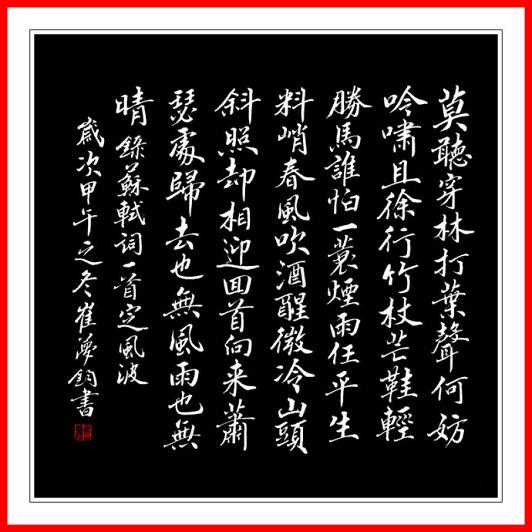 莫聽穿林打葉聲何妨
吟嘯且徐行竹杖芒鞋輕
勝馬誰怕一蓑煙雨任平生
料峭春風吹酒醒微冷山頭
斜照却相迎回首向来蕭
瑟處歸去也無風雨也無
晴 錄蘇軾詞一首定風波
歲次甲午之冬崔夢鈞書